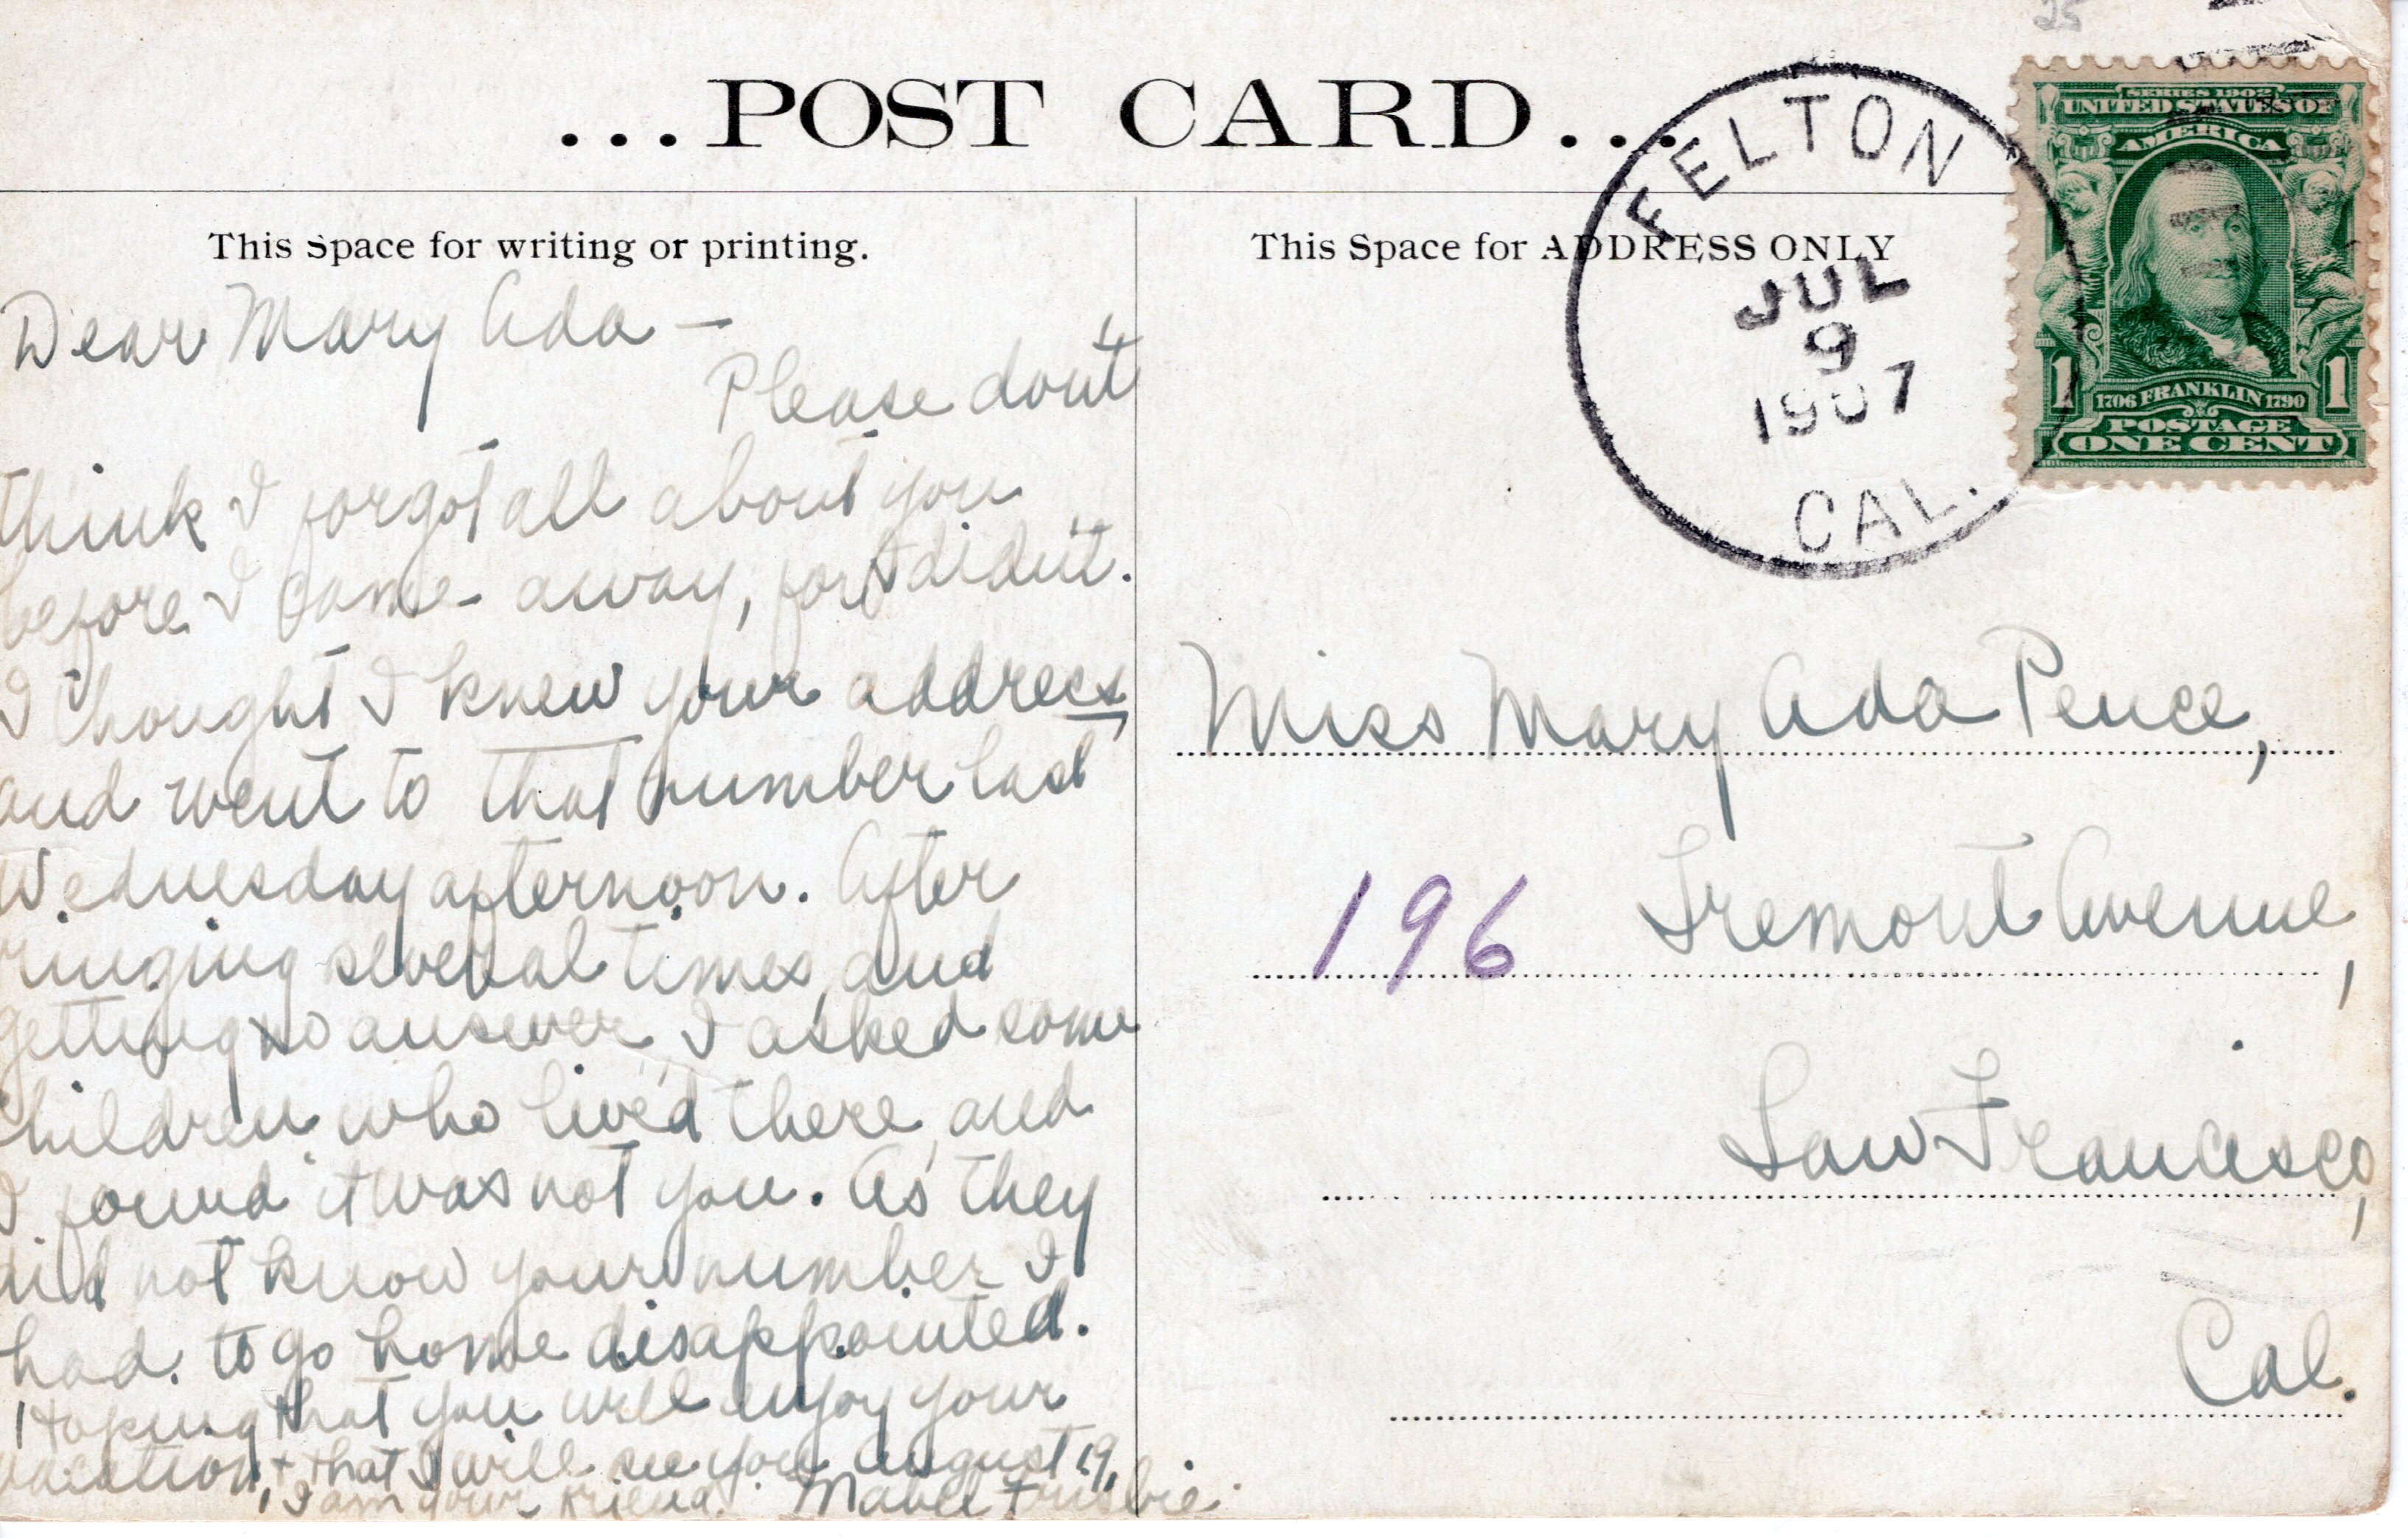 25
...POST CARD...
This Space for writing or printing.
Dear Mary Ada —
Please don't
think I forgot all about you
before I came away, for I didn't.
I thought I knew your address,
and went to that number last
Wednesday afternoon. After
ringing several times, and
getting no answer, I asked some
children who lived there, and
I found it was not you. As they
did not know your number I
had to go home disappointed.
Hoping that you will enjoy your
vacation, + that I will see you August 19,
I am your friend. Mabel Frisbie.
This Space for ADDRESS ONLY
FELTON
JUL
9
1907
CAL.
SERIES 1902
UNITED STATES OF
AMERICA
1 1706 FRANKLIN 1790 1
POSTAGE
ONE CENT
Miss Mary Ada Pence,
196 Tremont Avenue,
San Francisco,
Cal.